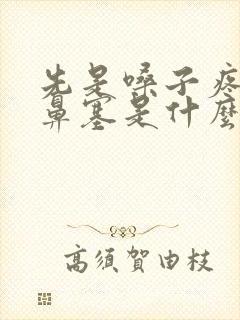 先是嗓子疼
鼻塞是什麼
高須賀由枝